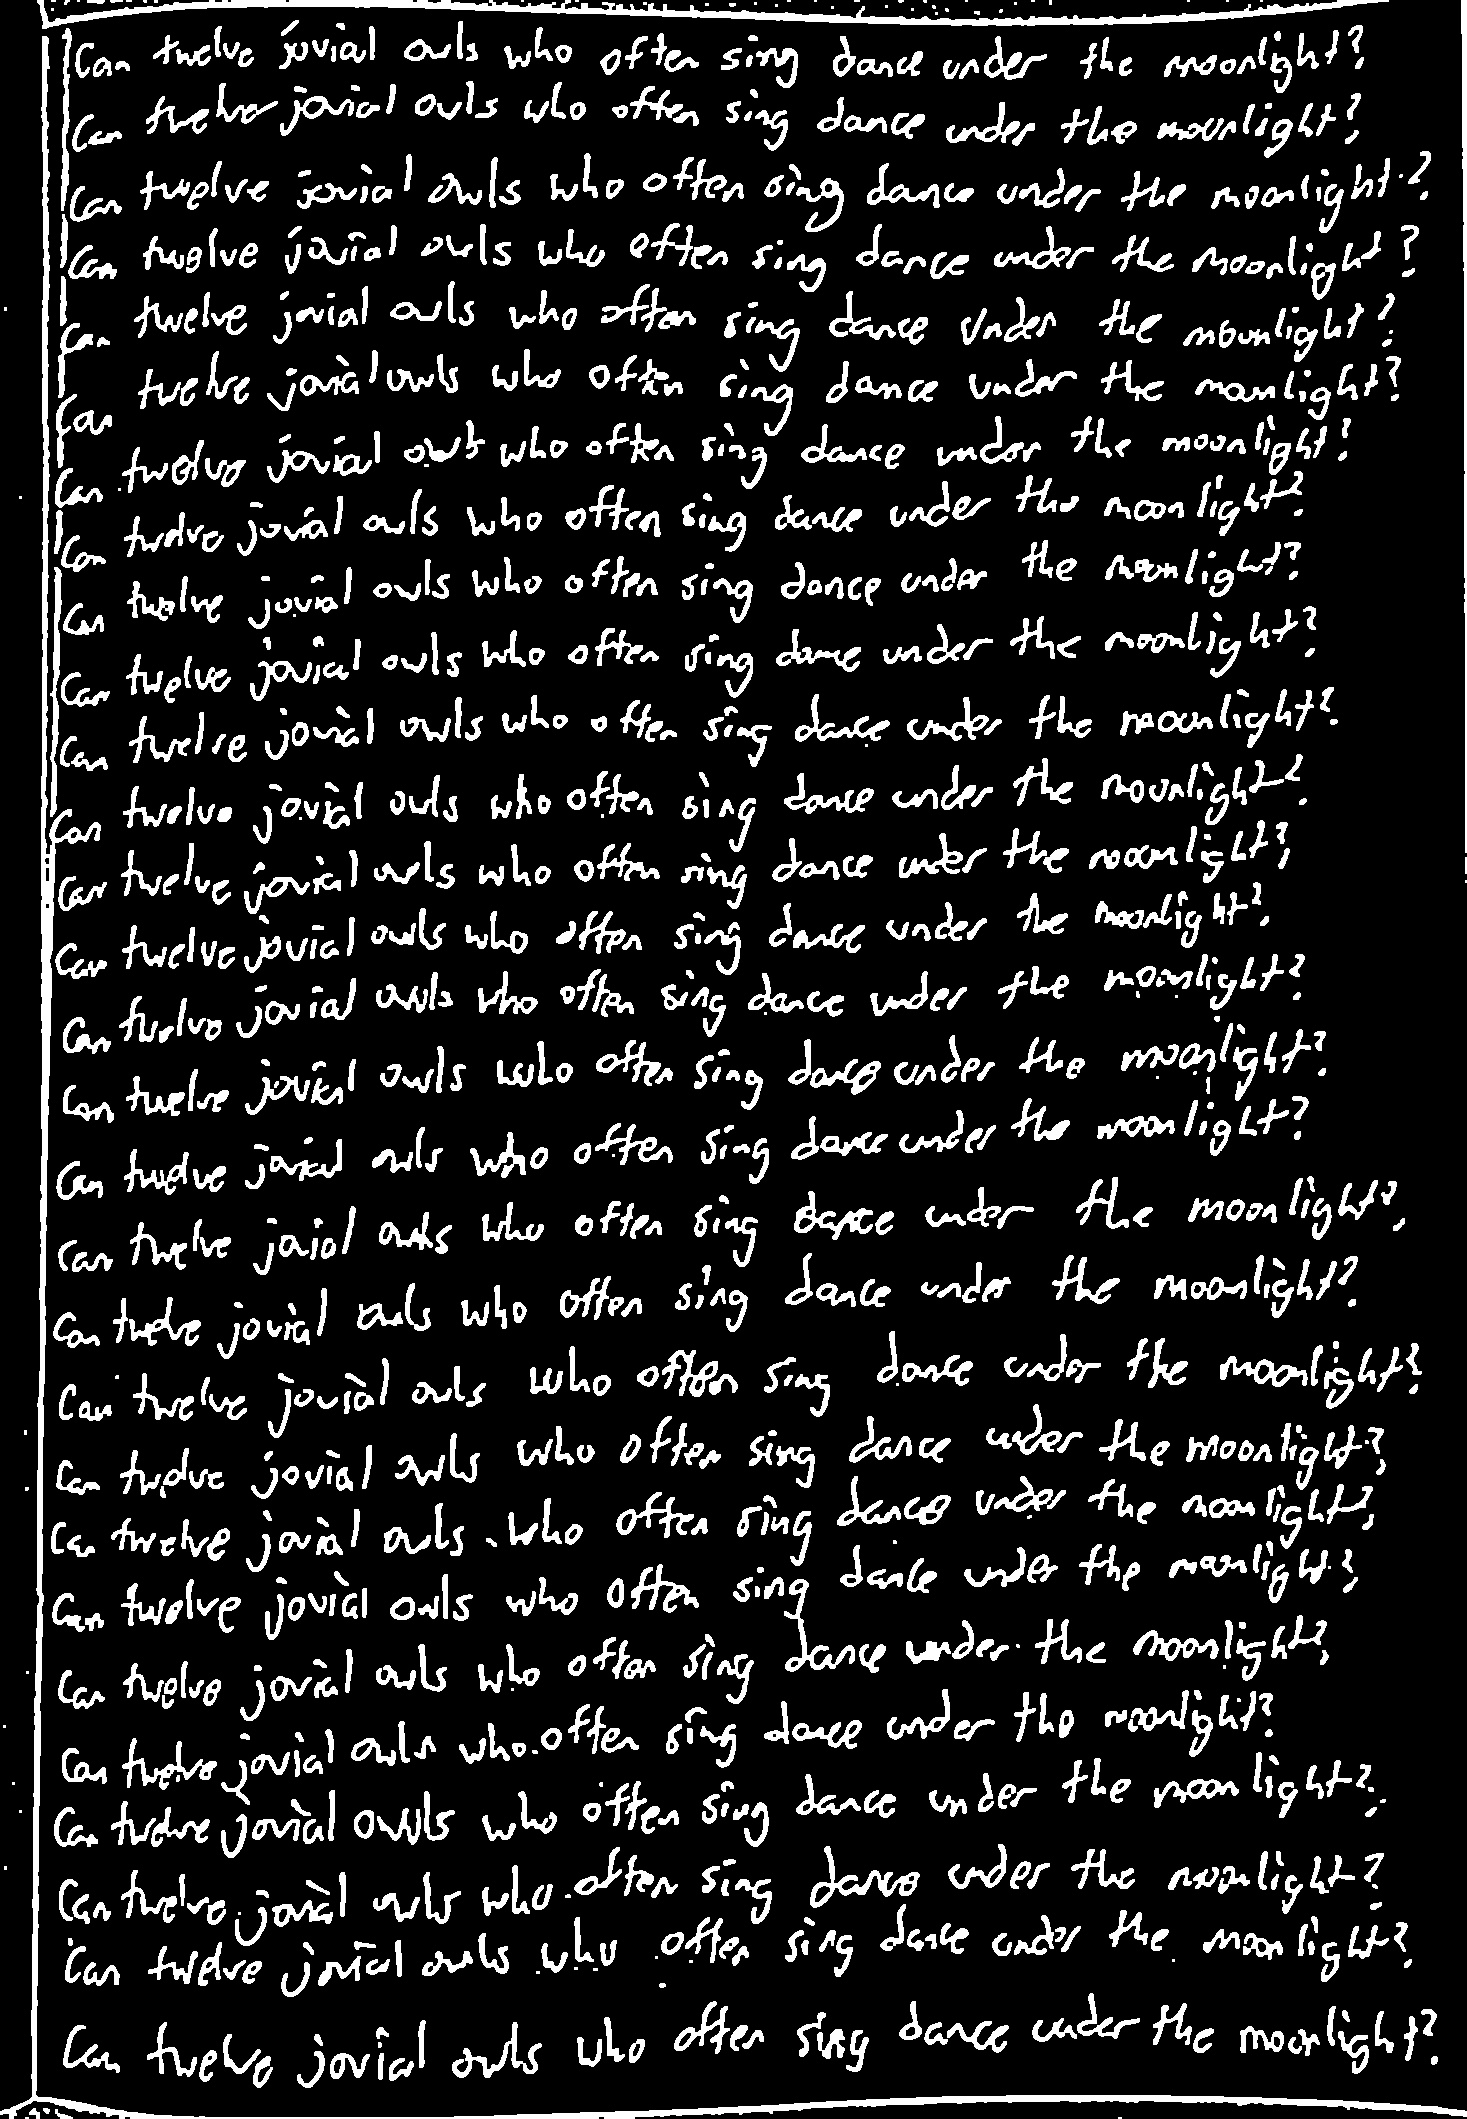 Can twelve jovial owls who often sing dance under the moonlight?
Can twelve jovial owls who often sing dance under the moonlight?
Can twelve jovial owls who often sing dance under the moonlight?
Can twelve jovial owls who often sing dance under the moonlight?
Can twelve jovial owls who often sing dance under the moonlight?
Can twelve jovial owls who often sing dance under the moonlight?
Can twelve jovial owls who often sing dance under the moonlight?
Can twelve jovial owls who often sing dance under the moonlight?
Can twelve jovial owls who often sing dance under the moonlight?
Can twelve jovial owls who often sing dance under the moonlight?
Can twelve jovial owls who often sing dance under the moonlight?
Can twelve jovial owls who often sing dance under the moonlight?
Can twelve jovial owls who often sing dance under the moonlight?
Can twelve jovial owls who often sing dance under the moonlight?
Can twelve jovial owls who often sing dance under the moonlight?
Can twelve jovial owls who often sing dance under the moonlight?
Can twelve jovial owls who often sing dance under the moonlight?
Can twelve jovial owls who often sing dance under the moonlight?
Can twelve jovial owls who often sing dance under the moonlight?
Can twelve jovial owls who often sing dance under the moonlight?
Can twelve jovial owls who often sing dance under the moonlight?
Can twelve jovial owls who often sing dance under the moonlight?
Can twelve jovial owls who often sing dance under the moonlight?
Can twelve jovial owls who often sing dance under the moonlight?
Can twelve jovial owls who often sing dance under the moonlight?
Can twelve jovial owls who often sing dance under the moonlight?
Can twelve jovial owls who often sing dance under the moonlight?
Can twelve jovial owls who often sing dance under the moonlight?
Can twelve jovial owls who often sing dance under the moonlight?